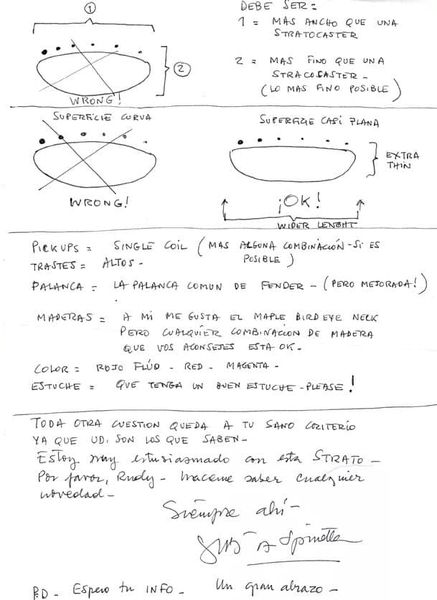 1
DEBE SER:
1 = MAS ANCHO QUE UNA
STRATOCASTER
2
2 = MAS FINO QUE UNA
STRACOSASTER -
(LO MAS FINO POSIBLE)
WRONG!
SUPERFICIE CURVA
WRONG!
SUPERFICIE CASI PLANA
EXTRA
THIN
¡OK!
WIDER LENGHT
PICKUPS = SINGLE COIL (MAS ALGUNA COMBINACIÓN - SI ES
POSIBLE)
TRASTES = ALTOS -
PALANCA = LA PALANCA COMUN DE FENDER - (PERO MEJORADA!)
MADERAS = A MI ME GUSTA EL MAPLE BIRD EYE NECK
PERO CUALQUIER COMBINACION DE MADERA
QUE VOS ACONSEJES ESTA OK -
COLOR = ROJO FLÚO - RED - MAGENTA -
ESTUCHE = QUE TENGA UN BUEN ESTUCHE - PLEASE!
TODA OTRA CUESTION QUEDA A TU SANO CRITERIO
YA QUE UD. SON LOS QUE SABEN -
Estoy muy entusiasmado con esta STRATO -
Por favor, Rudy - haceme saber cualquier
novedad -
Siempre ahí -
Luis A Spinetta
PD - Espero tu INFO - Un gran abrazo -